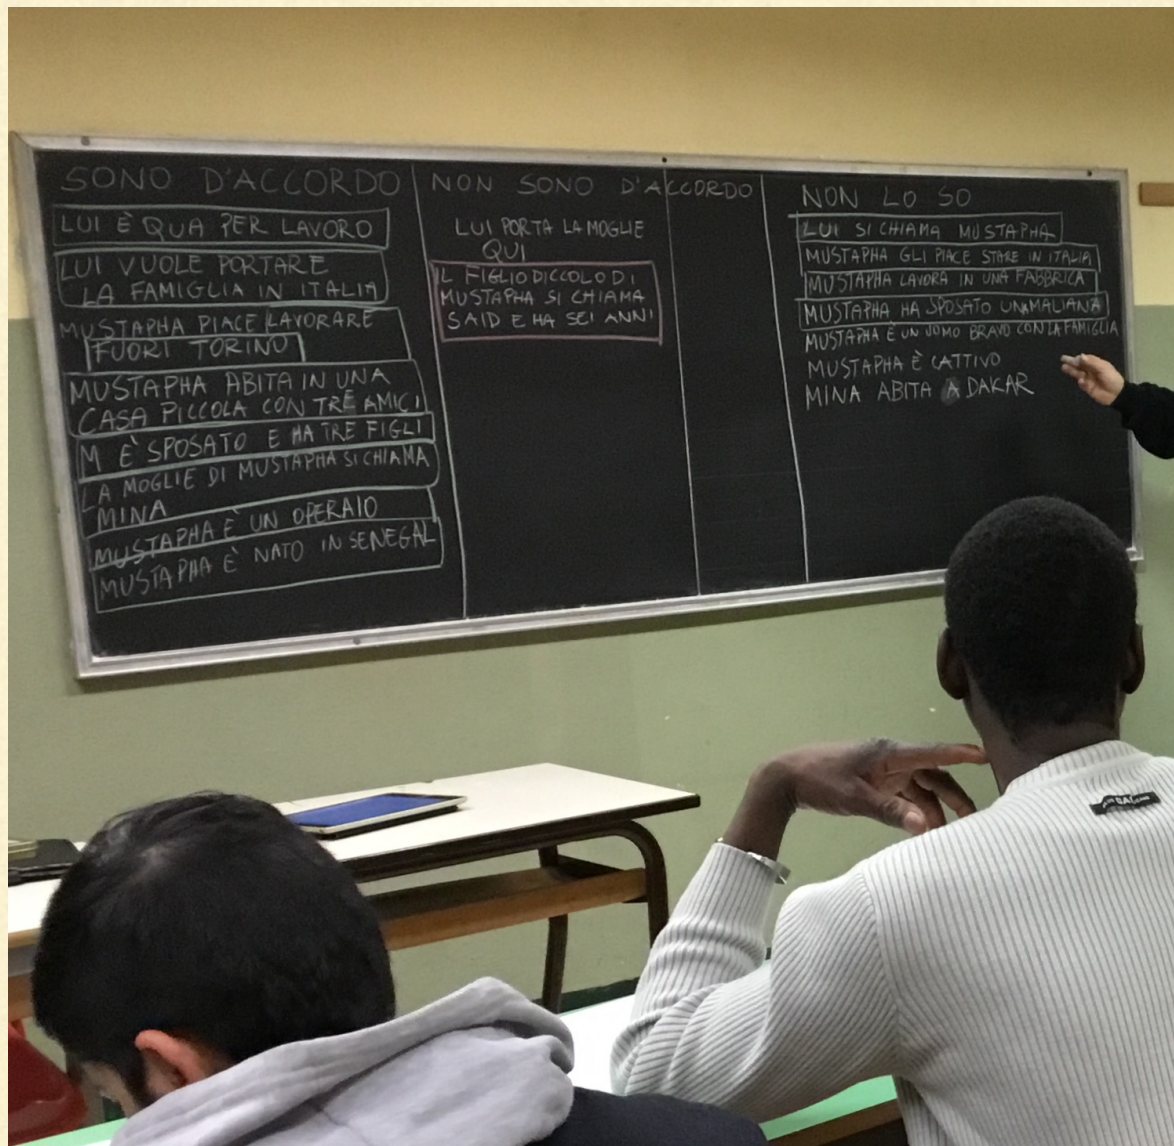 SONO D'ACCORDO
LUI È QUA PER LAVORO
LUI VUOLE PORTARE
LA FAMIGLIA IN ITALIA
MUSTAPHA PIACE LAVORARE
FUORI TORINO
MUSTAPHA ABITA IN UNA
CASA PICCOLA CON TRE AMICI
M È SPOSATO E HA TRE FIGLI
LA MOGLIE DI MUSTAPHA SI CHIAMA
MINA
MUSTAPHA È UN OPERAIO
MUSTAPHA È NATO IN SENEGAL
NON SONO D'ACCORDO
LUI PORTA LA MOGLIE
QUI
IL FIGLIO DICCOLO DI
MUSTAPHA SI CHIAMA
SAID E HA SEI ANNI
NON LO SO
LUI SI CHIAMA MUSTAPHA
MUSTAPHA GLI PIACE STARE IN ITALIA
MUSTAPHA LAVORA IN UNA FABBRICA
MUSTAPHA HA SPOSATO UNA MALIANA
MUSTAPHA È UN UOMO BRAVO CON LA FAMIGLIA
MUSTAPHA È CATTIVO
MINA ABITA A DAKAR